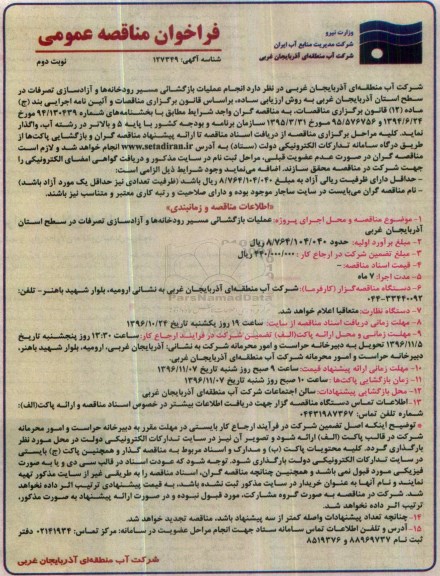 وزارت نیرو
شرکت مدیریت منابع آب ایران
شرکت آب منطقه‌ای آذربایجان غربی
فراخوان مناقصه عمومی
شناسه آگهی: ۱۲۷۳۴۹
نوبت دوم
شرکت آب منطقه‌ای آذربایجان غربی در نظر دارد انجام عملیات بازگشائی مسیر رودخانه‌ها و آزادسازی تصرفات در
سطح استان آذربایجان غربی به روش ارزیابی ساده، براساس قانون برگزاری مناقصات و آئین نامه اجرایی بند (ج)
ماده (۱۲) قانون برگزاری مناقصات، به مناقصه گران واجد شرایط مطابق با بخشنامه‌های شماره ۹۴/۱۳۰۴۳۹ مورخ
۱۳۹۴/۶/۲۴ و ۹۵/۵۷۶۷۵۶ مورخ ۱۳۹۵/۳/۳۱ سازمان برنامه و بودجه کشور با پایه ۵ و بالاتر در رشته آب، واگذار
نماید. کلیه مراحل برگزاری مناقصه از دریافت اسناد مناقصه تا ارائه پیشنهاد مناقصه گران و بازگشایی پاکت‌ها از
طریق درگاه سامانه تدارکات الکترونیکی دولت (ستاد) به آدرس www.setadiran.ir انجام خواهد شد و لازم است
مناقصه گران در صورت عدم عضویت قبلی، مراحل ثبت نام در سایت مذکور و دریافت گواهی امضای الکترونیکی را
جهت شرکت در مناقصه محقق سازند. اضافه می‌نماید وجود شرایط ذیل الزامی است:
- حداقل دارای ظرفیت ریالی آزاد به مبلغ ۸/۷۶۴/۱۰۴/۰۴۰ ریال باشد (ظرفیت تعدادی نیز حداقل یک مورد آزاد باشد)
- نام مناقصه گران می‌بایست در سایت ساجار موجود بوده و دارای صلاحیت و رتبه کاری معتبر و متناسب نیز باشند.
«اطلاعات مناقصه و زمانبندی»
۱- موضوع مناقصه و محل اجرای پروژه: عملیات بازگشائی مسیر رودخانه‌ها و آزادسازی تصرفات در سطح استان
آذربایجان غربی
۲- مبلغ برآورد اولیه: حدود ۸/۷۶۴/۱۰۴/۰۴۰ ریال
۳- مبلغ تضمین شرکت در ارجاع کار: ۴۴۰/۰۰۰/۰۰۰ ریال
۴- قیمت اسناد مناقصه: -
۵- مدت اجرا: ۷ ماه
۶- دستگاه مناقصه‌گزار (کارفرما): شرکت آب منطقه‌ای آذربایجان غربی به نشانی ارومیه، بلوار شهید باهنر- تلفن:
۰۴۴-۳۳۴۴۰۰۹۲
۷- دستگاه نظارت: متعاقبا اعلام خواهد شد.
۸- مهلت زمانی دریافت اسناد مناقصه از سایت: ساعت ۱۹ روز یکشنبه تاریخ ۱۳۹۶/۱۰/۲۴
۹- مهلت زمانی و محل ارائه پاکت(الف) تضمین شرکت در فرآیند ارجاع کار: ساعت ۱۳:۳۰ روز پنجشنبه تاریخ
۱۳۹۶/۱۱/۵ تحویل به دبیرخانه حراست و امور محرمانه شرکت به نشانی: آذربایجان غربی، ارومیه، بلوار شهید باهنر،
دبیرخانه حراست و امور محرمانه شرکت آب منطقه‌ای آذربایجان غربی.
۱۰- مهلت زمانی ارائه پیشنهاد قیمت: ساعت ۹ صبح روز شنبه تاریخ ۱۳۹۶/۱۱/۰۷
۱۱- زمان بازگشایی پاکت‌ها: ساعت ۱۰ صبح روز شنبه تاریخ ۱۳۹۶/۱۱/۰۷
۱۲- محل بازگشایی پیشنهادات: سالن اجتماعات شرکت آب منطقه‌ای آذربایجان غربی
۱۳- اطلاعات تماس دستگاه مناقصه گزار جهت دریافت اطلاعات بیشتر در خصوص اسناد مناقصه و ارائه پاکت(الف):
شماره تلفن تماس: ۰۴۴۳۱۹۸۷۳۶۷
* توضیح اینکه اصل تضمین شرکت در فرآیند ارجاع کار بایستی در مهلت مقرر به دبیرخانه حراست و امور محرمانه
شرکت در قالب پاکت (الف) ارائه شود و تصویر آن نیز در سایت تدارکات الکترونیکی دولت در محل مورد نظر
بارگذاری گردد. کلیه محتویات پاکت (ب) و مدارک و اسناد مربوط به مناقصه گذار و همچنین پاکت (ج) بایستی
در سایت تدارکات الکترونیکی دولت بارگذاری شود. توجه شود که عودت اسناد در قالب سی دی و یا به صورت
فیزیکی مورد قبول نمی باشد و همچنین چنانچه مناقصه گران، اسناد مناقصه را به طریقی غیر از سایت مذکور تهیه
نمایند و نام آنها به عنوان خریدار در سایت مذکور ثبت نشده باشد، به قیمت پیشنهادی ترتیب اثر داده نخواهد
شد. شرکت در مناقصه به صورت گروه مشارکت، مورد قبول نبوده و در صورت ارائه پیشنهاد به صورت مذکور،
ترتیب اثر داده نخواهد شد.
۱۴- چنانچه تعداد پیشنهادات واصله کمتر از سه پیشنهاد باشد، مناقصه تجدید خواهد شد.
۱۵- آدرس و تلفن اطلاعات تماس سامانه ستاد جهت انجام مراحل عضویت در سامانه: مرکز تماس: ۰۲۱۴۱۹۳۴ دفتر
ثبت نام ۸۸۹۶۹۷۳۷ و ۸۵۱۹۳۷۶
شرکت آب منطقه‌ای آذربایجان غربی